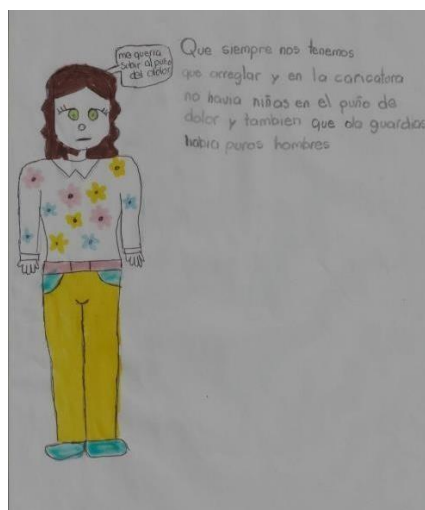 me queria
subir al puño
del dolor
Que siempre nos tenemos
que arreglar y en la caricatura
no havia niñas en el puño de
dolor y tambien que ola guardias
habia puros hombres